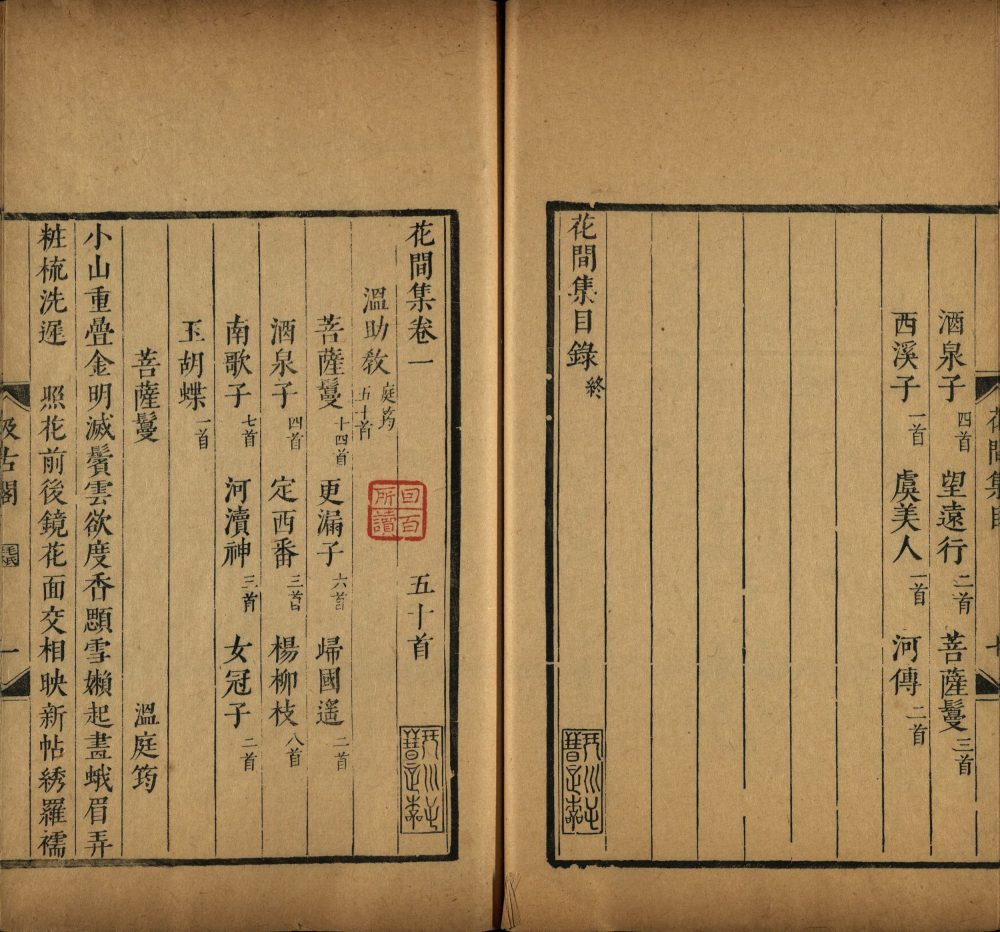 花間集目
十
酒泉子四首 望遠行二首 菩薩鬘三首
西溪子一首 虞美人一首 河傳二首
花間集目錄終
花間集卷一
五十首
溫助教庭筠五十首
菩薩鬘十四首 更漏子六首 歸國遙二首
酒泉子四首 定西番三首 楊柳枝八首
南歌子七首 河瀆神三首 女冠子二首
玉胡蝶一首
菩薩鬘 溫庭筠
小山重疊金明滅鬢雲欲度香顋雪嬾起畫蛾眉弄
粧梳洗遲 照花前後鏡花面交相映新帖綉羅襦
汲古閣
毛氏
一